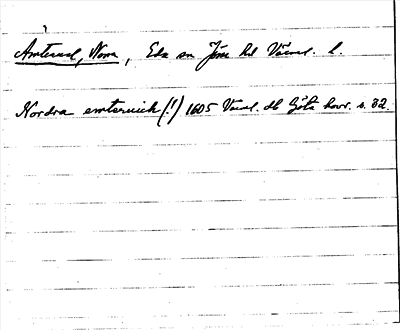 Amterud, Norra, Eda sn Jösse hd Värml. l.
Nordra emteruich (!) 1605 Värml. db Göta hovr. s. 32